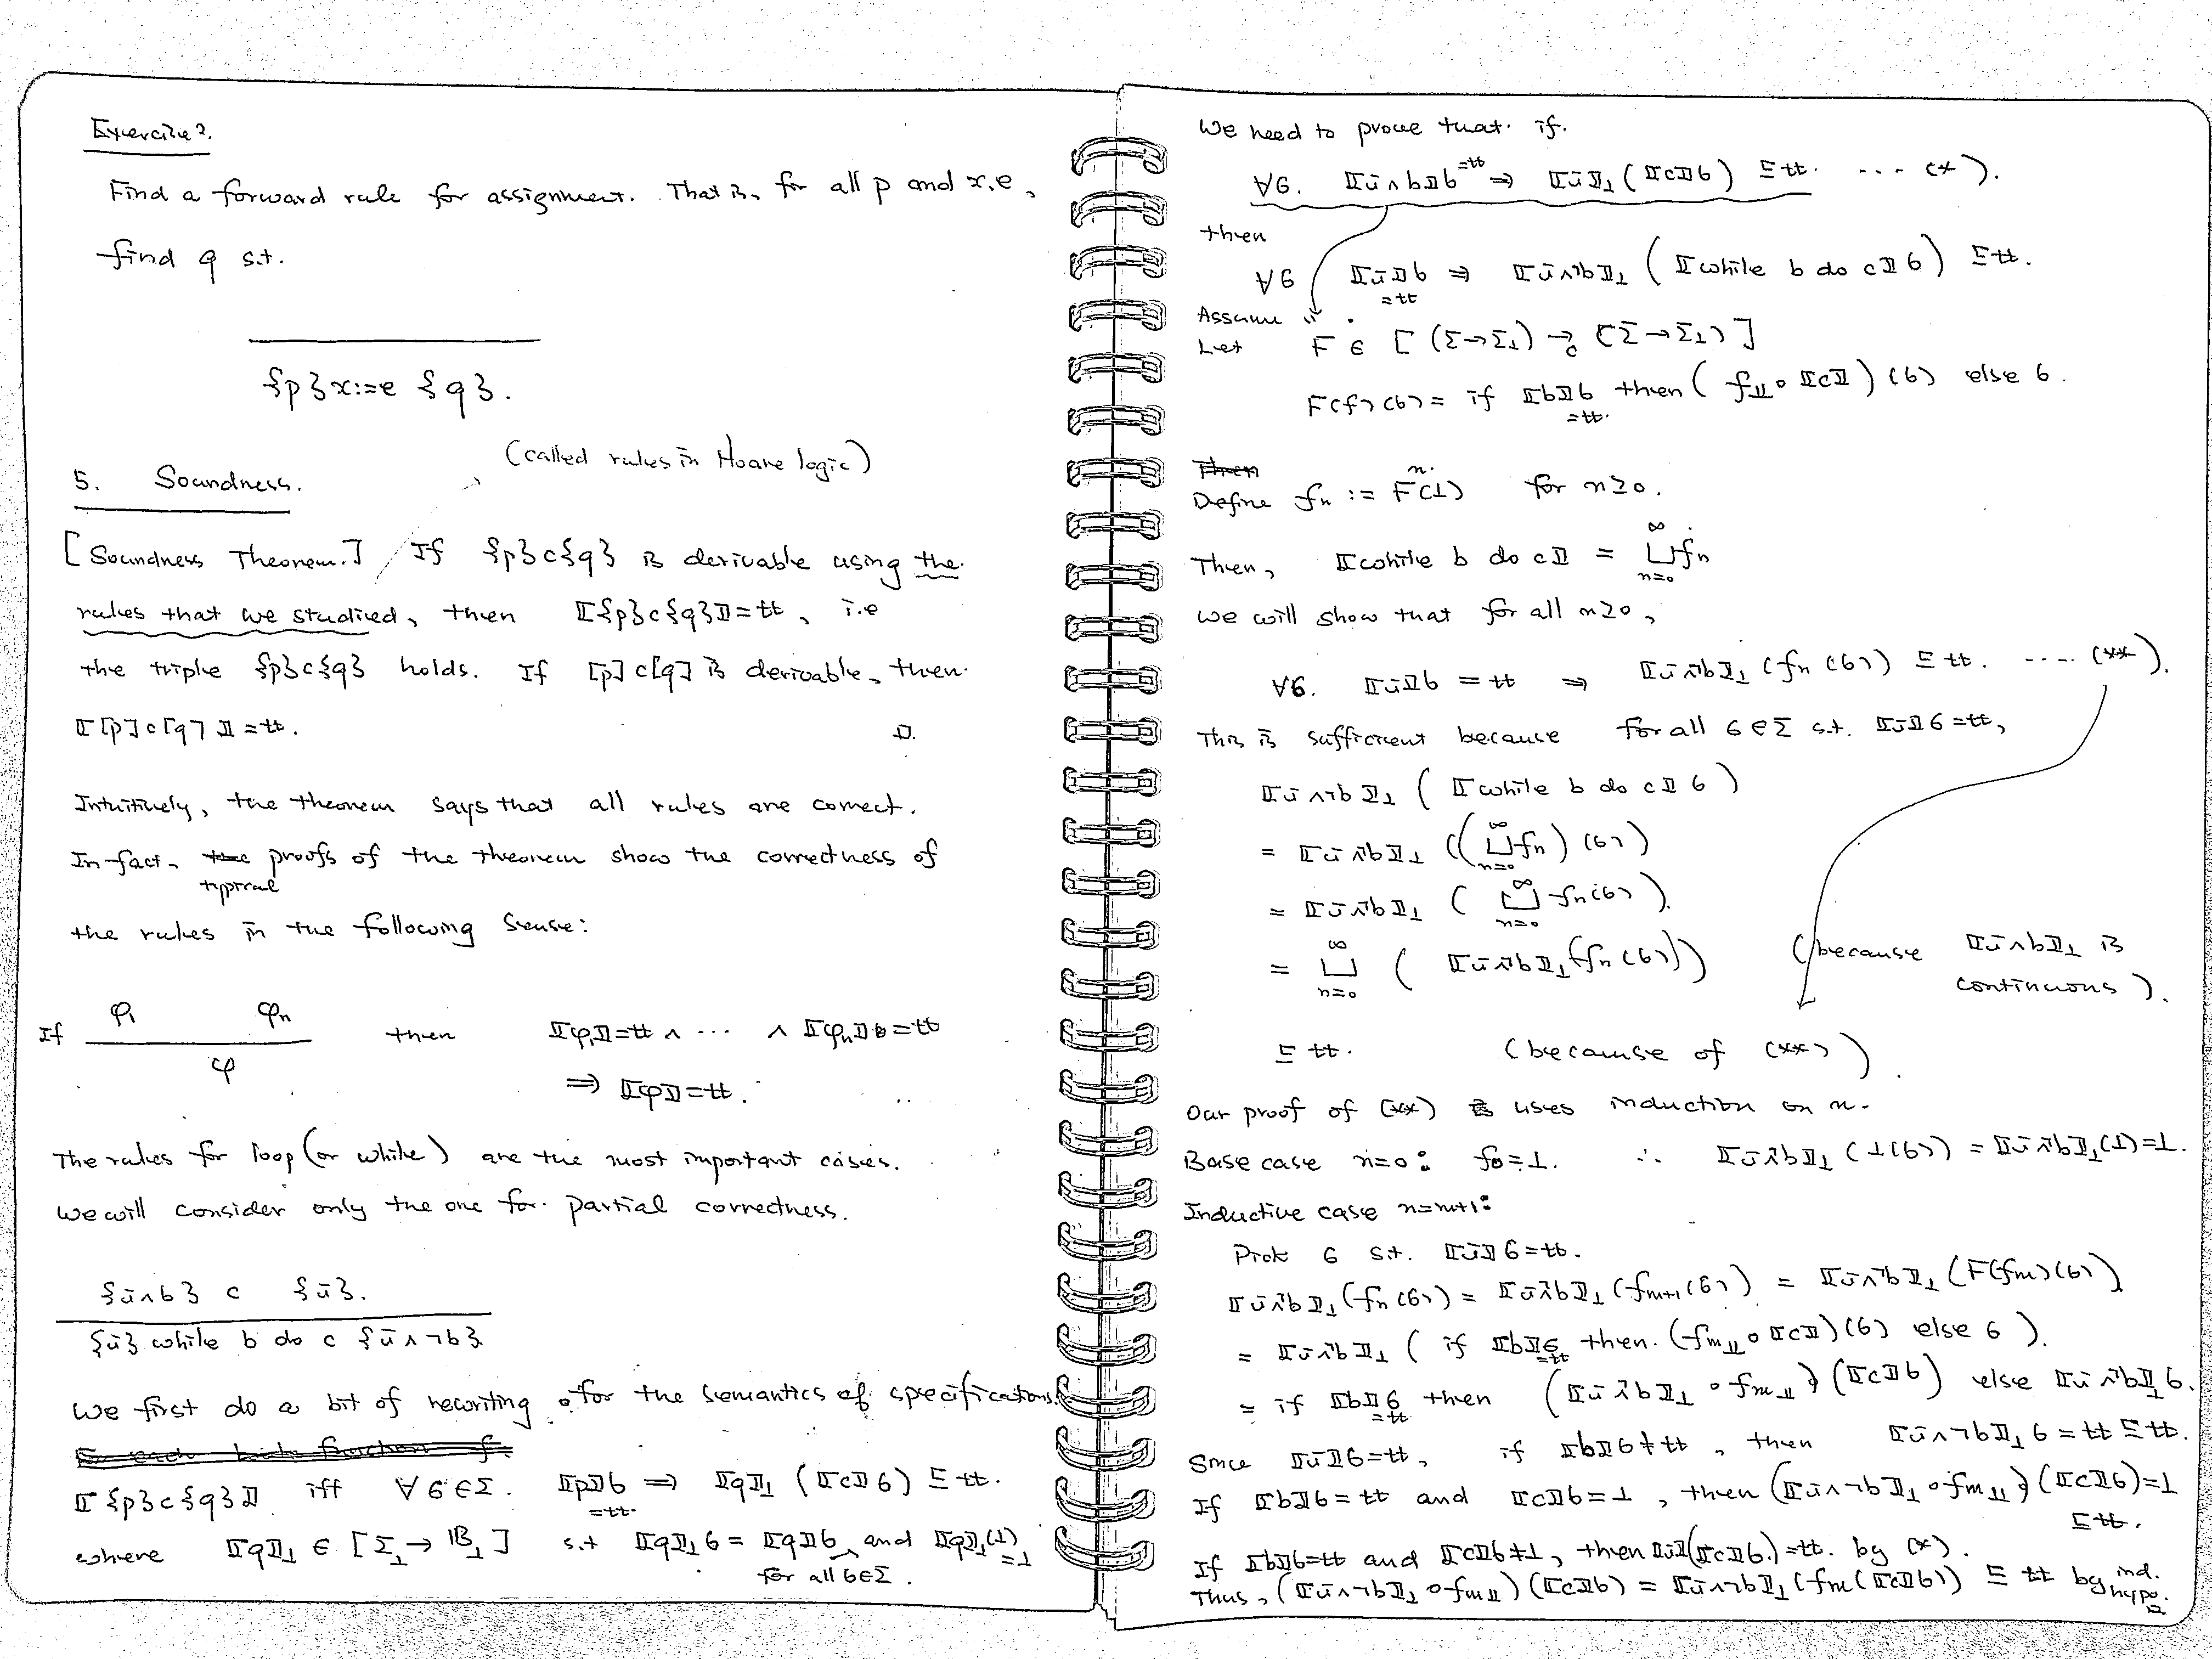 Exercise?.
Find a forward rule for assignment. That is, for all p and x, e,
find q s.t.
{p} x:=e {q}.
(called rules in Hoare logic)
5. Soundness.
[Soundness Theorem.] If {p}c{q} is derivable using the
rules that we studied, then ⟦{p}c{q}⟧=tt, i.e
the triple {p}c{q} holds. If [p]c[q] is derivable, then
⟦[p]c[q]⟧=tt. □.
Intuitively, the theorem says that all rules are correct.
In fact, typical proofs of the theorem show the correctness of
the rules in the following sense:
If φ₁ φn / φ then ⟦φ₁⟧=tt ∧ ··· ∧ ⟦φn⟧σ=tt
⟹ ⟦φ⟧=tt.
The rules for loop (or while) are the most important cases.
We will consider only the one for partial correctness.
{ū∧b} c {ū}.
{ū} while b do c {ū∧¬b}
We first do a bit of rewriting for the semantics of specifications.
⟦{p}c{q}⟧ iff ∀σ∈Σ. ⟦p⟧σ =tt ⟹ ⟦q⟧⊥ (⟦c⟧σ) ⊑ tt.
where ⟦q⟧⊥ ∈ [Σ⊥ → 𝔹⊥] s.t ⟦q⟧⊥σ = ⟦q⟧σ, and ⟦q⟧⊥(⊥) =⊥
for all σ∈Σ.
We need to prove that if.
∀σ. ⟦ū∧b⟧σ =tt ⇒ ⟦ū⟧⊥ (⟦c⟧σ) ⊑ tt. ... (*).
then
∀σ ⟦ū⟧σ =tt ⇒ ⟦ū∧¬b⟧⊥ (⟦while b do c⟧σ) ⊑ tt.
Assume "
Let F ∈ [(Σ→Σ⊥) →c (Σ→Σ⊥)]
F(f)(σ) = if ⟦b⟧σ =tt. then (f⊥⊥ ∘ ⟦c⟧)(σ) else σ.
Then
Define fn := Fⁿ(⊥) for n≥0.
Then, ⟦while b do c⟧ = ⊔ n=0 ∞ fn
We will show that for all n≥0,
∀σ. ⟦ū⟧σ = tt ⇒ ⟦ū∧¬b⟧⊥ (fn(σ)) ⊑ tt. .... (**).
This is sufficient because for all σ∈Σ s.t. ⟦ū⟧σ=tt,
⟦ū∧¬b⟧⊥ (⟦while b do c⟧σ)
= ⟦ū∧¬b⟧⊥ ((⊔ n=0 ∞ fn)(σ))
= ⟦ū∧¬b⟧⊥ (⊔ n=0 ∞ fn(σ))
= ⊔ n=0 ∞ (⟦ū∧¬b⟧⊥(fn(σ))) (because ⟦ū∧b⟧⊥ is
continuous).
⊑ tt. (because of (**)).
Our proof of (**) uses induction on n.
Base case n=0: f₀=⊥. ∴ ⟦ū∧¬b⟧⊥(⊥(σ)) = ⟦ū∧¬b⟧⊥(⊥)=⊥.
Inductive case n=m+1:
Pick σ s.t. ⟦ū⟧σ=tt.
⟦ū∧¬b⟧⊥(fn(σ)) = ⟦ū∧¬b⟧⊥(fm+1(σ)) = ⟦ū∧¬b⟧⊥(F(fm)(σ))
= ⟦ū∧¬b⟧⊥ (if ⟦b⟧σ =tt then (fm⊥⊥ ∘ ⟦c⟧)(σ) else σ).
= if ⟦b⟧σ =tt then (⟦ū∧¬b⟧⊥ ∘ fm⊥⊥)(⟦c⟧σ) else ⟦ū∧¬b⟧⊥σ.
Since ⟦ū⟧σ=tt, if ⟦b⟧σ≠tt, then ⟦ū∧¬b⟧⊥σ=tt ⊑ tt.
If ⟦b⟧σ=tt and ⟦c⟧σ=⊥, then (⟦ū∧¬b⟧⊥∘fm⊥⊥)(⟦c⟧σ)=⊥
⊑ tt.
If ⟦b⟧σ=tt and ⟦c⟧σ≠⊥, then ⟦ū⟧(⟦c⟧σ)=tt. by (*).
Thus, (⟦ū∧¬b⟧⊥∘fm⊥⊥)(⟦c⟧σ) = ⟦ū∧¬b⟧⊥(fm(⟦c⟧σ)) ⊑ tt by ind. hypo. □